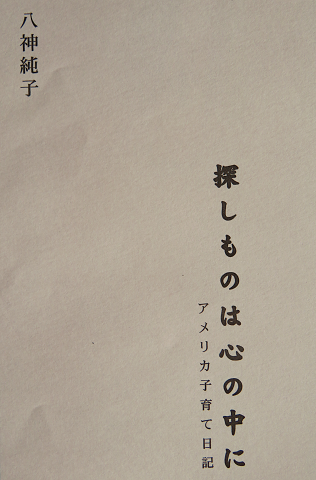 探しものは心の中に
アメリカ子育て日記
八神純子